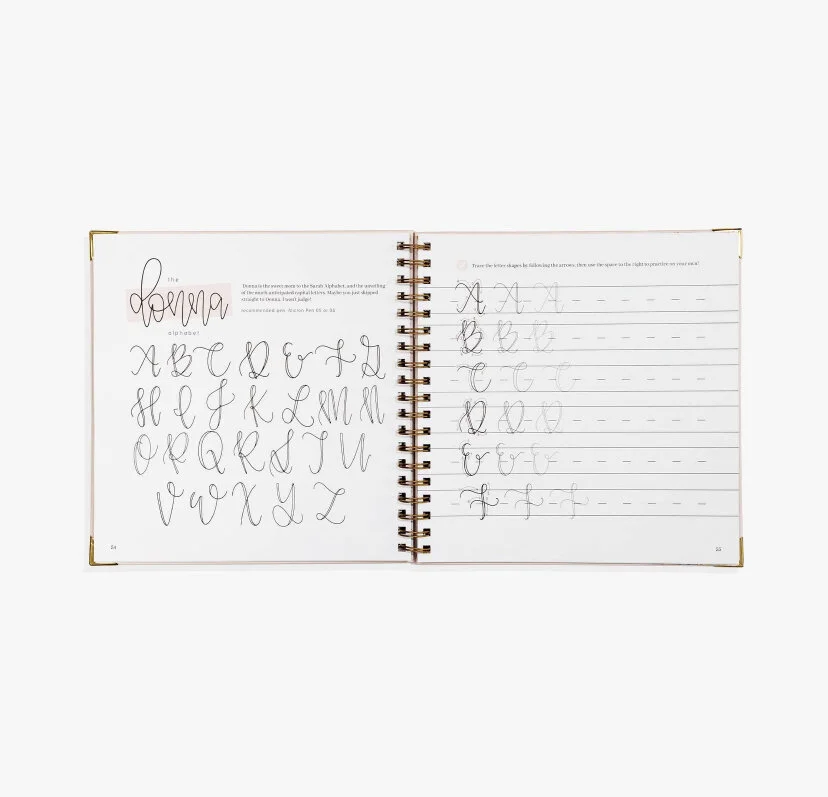 the
donna
alphabet
Donna is the sweet mom to the Sarah Alphabet, and the unveiling
of the much anticipated capital letters. Maybe you just skipped
straight to Donna, I won't judge!
recommended pen: Micron Pen 05 or 08
A B C D E F G
H I J K L M N
O P Q R S T U
V W X Y Z
54
Trace the letter shapes by following the arrows, then use the space to the right to practice on your own!
A A A
B B B
C C C
D D D
E E E
F F F
55